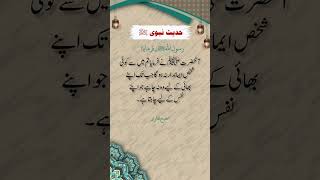 حدیث نبوی ﷺ
رسول اللہ ﷺ نے فرمایا:
آنحضرت ﷺ نے فرمایا تم میں سے کوئی
شخص ایماندار نہ ہوگا جب تک اپنے
بھائی کے لیے وہ نہ چاہے جو اپنے
نفس کے لیے چاہتا ہے۔
صحیح بخاری